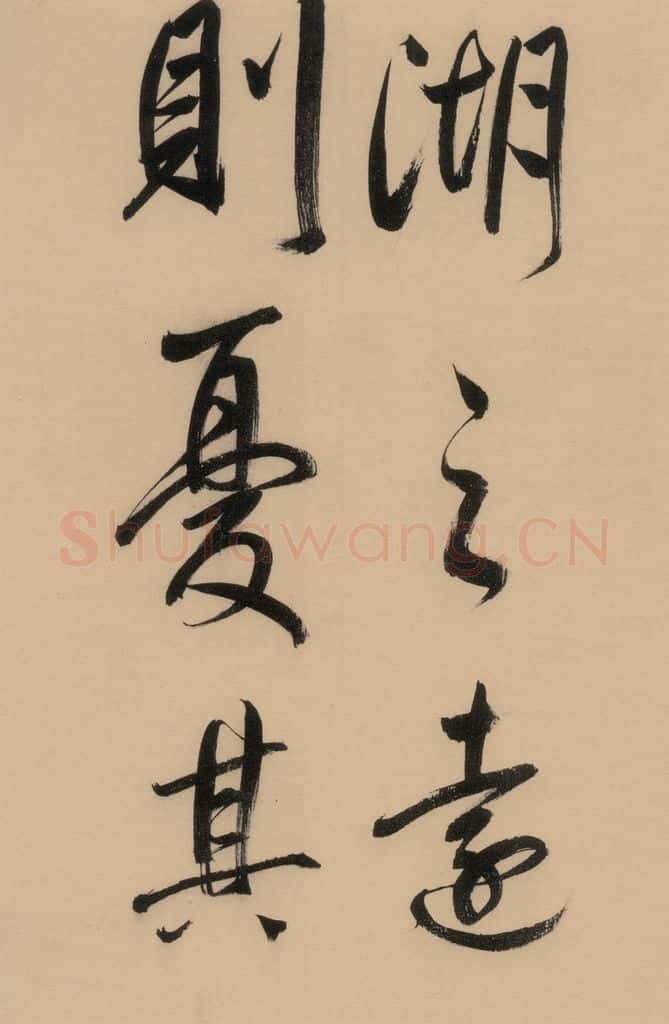 湖之遠
則憂其
Shufawang.CN